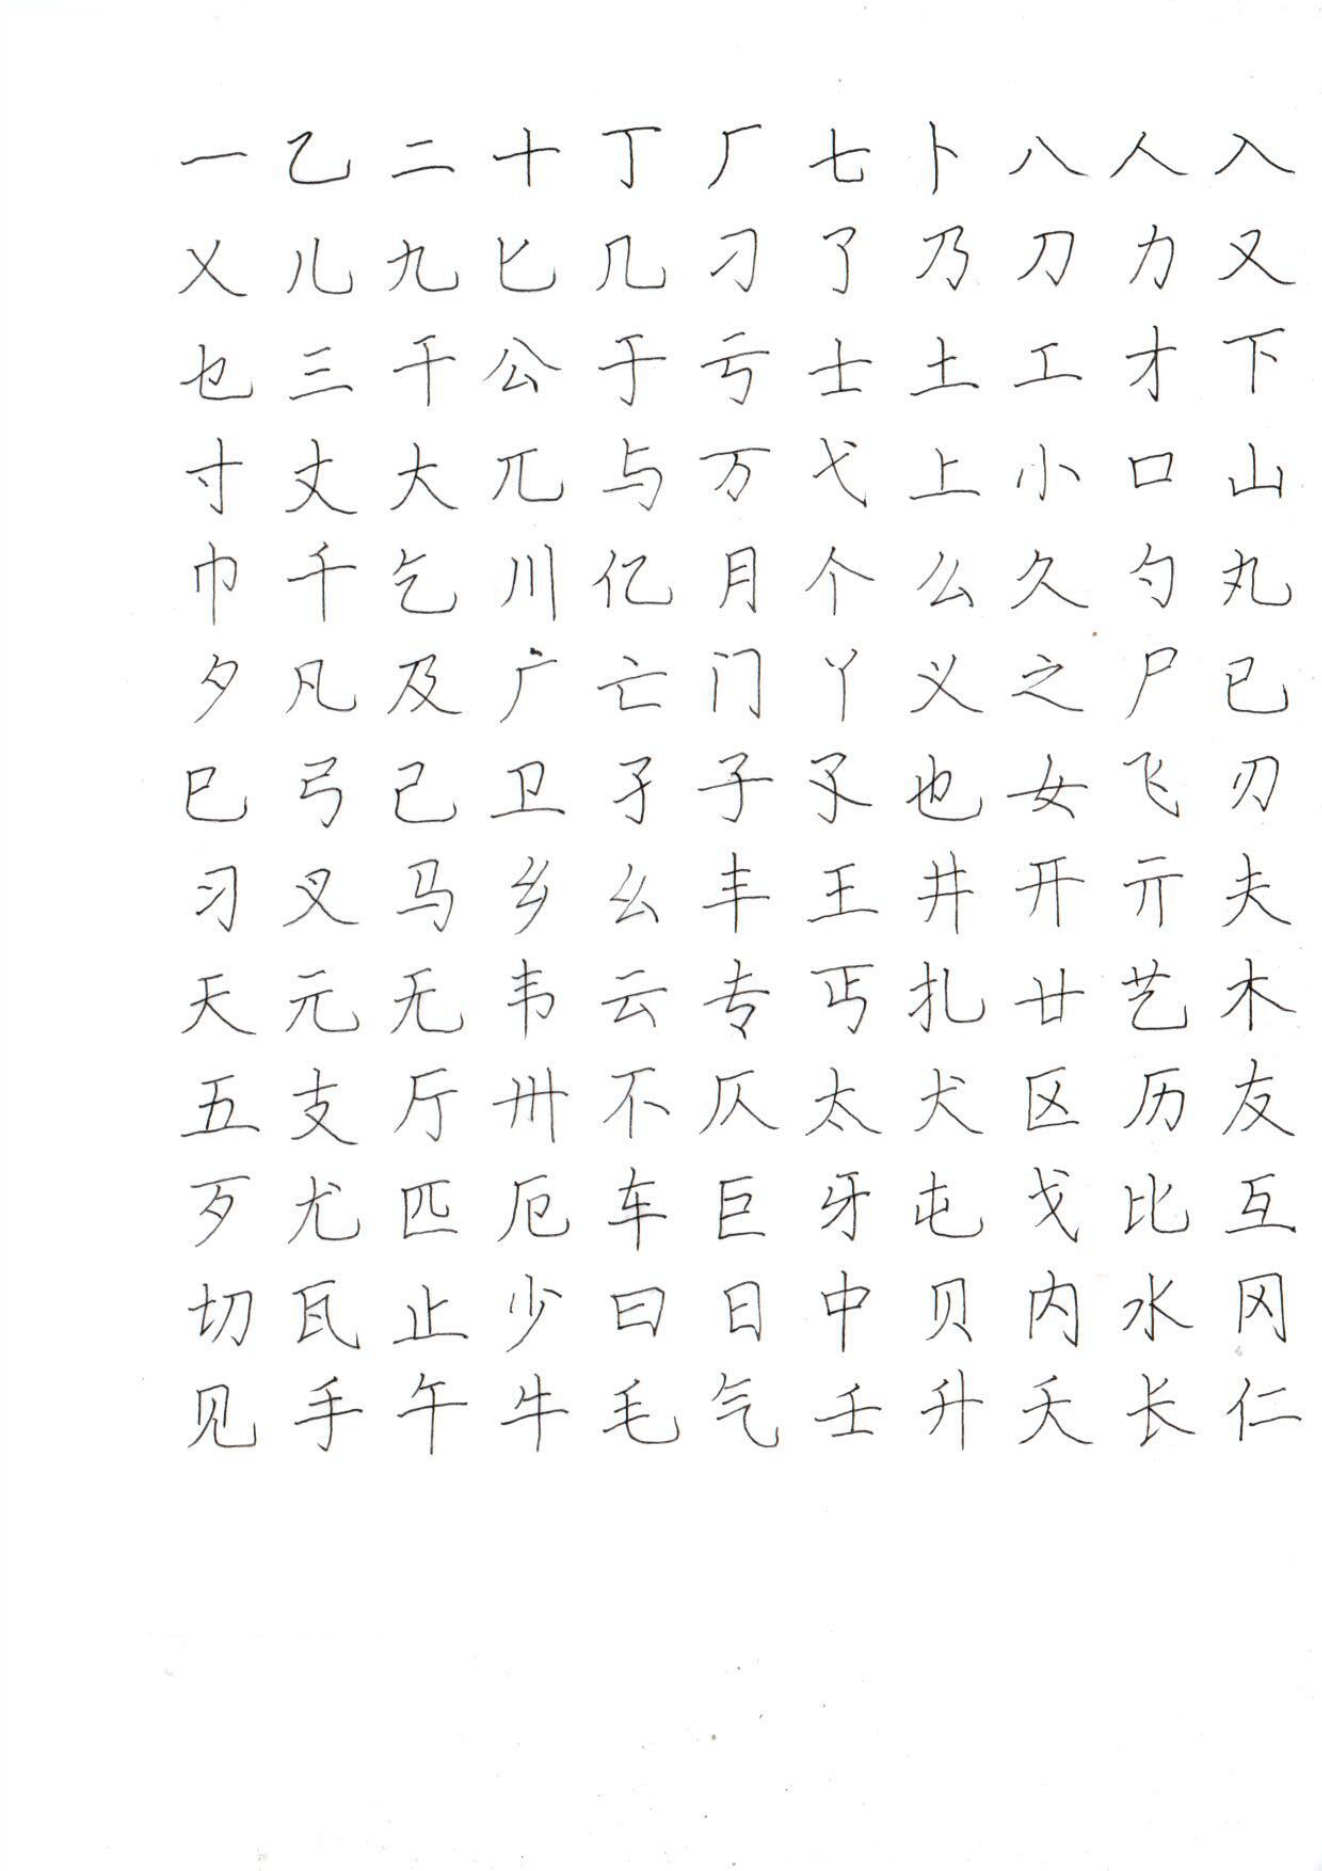 一乙二十丁厂七卜八人入
乂儿九匕几刁了乃刀力又
乜三干公于亏士土工才下
寸丈大兀与万弋上小口山
巾千乞川亿月个么久勺丸
夕凡及广亡门丫义之尸已
巳弓己卫孑子孓也女飞刃
习叉马乡幺丰王井开亓夫
天元无韦云专丐扎廿艺木
五支厅卅不仄太犬区历友
歹尤匹厄车巨牙屯戈比互
切瓦止少曰日中贝内水冈
见手午牛毛气壬升夭长仁